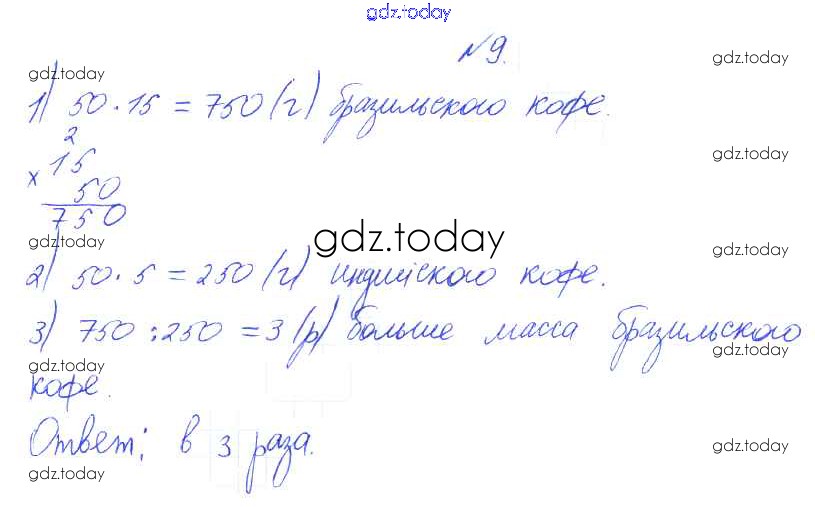 gdz.today
№9.
gdz.today
gdz.today
1) 50 · 15 = 750 (г) бразильского кофе.
2
gdz.today
× 15
50
750
gdz.today
gdz.today
gdz.today
2) 50 · 5 = 250 (г) индийского кофе.
3) 750 : 250 = 3 (р) больше масса бразильского
gdz.today
gdz.today
кофе.
Ответ: в 3 раза.
gdz.today
gdz.today